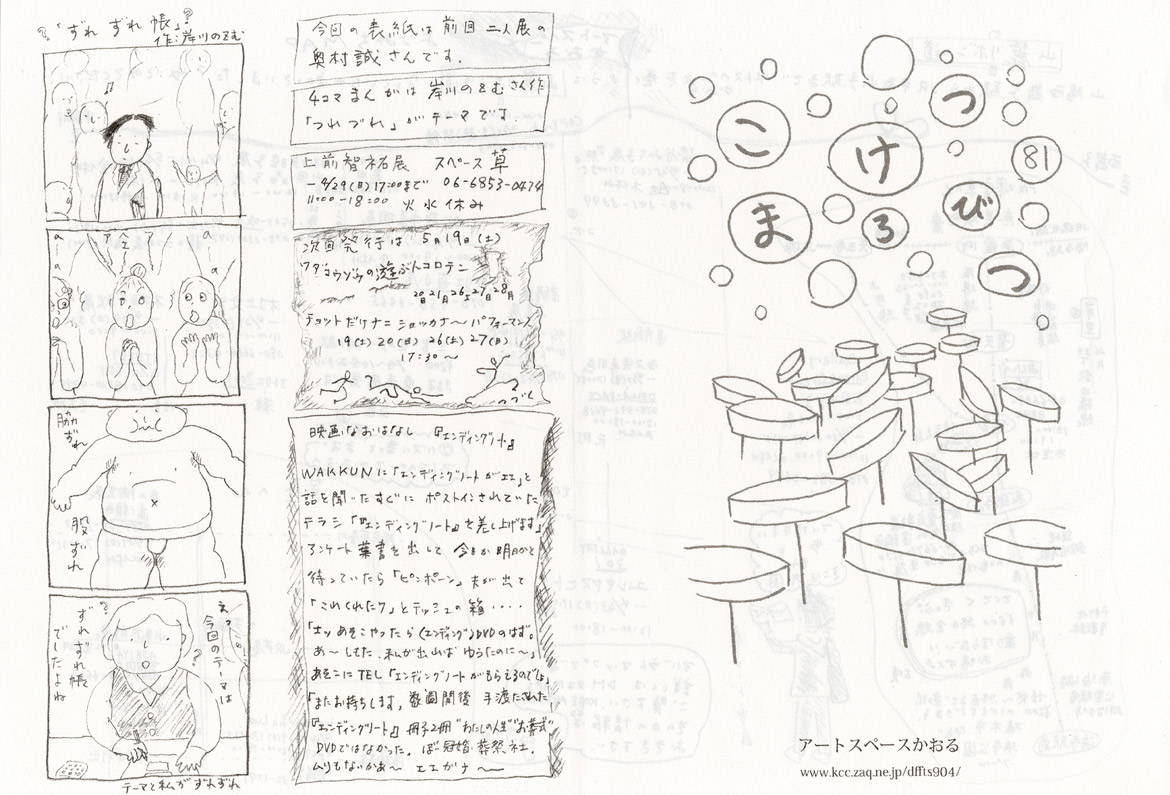 ?「ずれずれ帳」?
作:岸川のるむ
ア
a
a
脇ずれ
股ずれ
えっ
今回のテーマは
?
ずれずれ帳
でしたよね
テーマと私がずれずれ
今回の表紙は前回二人展の
奥村誠さんです.
4コマまんがは岸川のるむさん作
「つれづれ」がテーマです.
上前智祐展 スペース草
ー4/29(日)17:00まで 06-6853-0474
11:00-18:00 火水休み
次回発行は 5月19日(土)
ワダコウゾウの遊ぶトコロテン
20日21月26土27日28月
チョットだけナニショッカナ〜パフォーマンス
19(土)20(日) 26(土)27(日)
17:30〜
つづく
映画なおはなし 『エンディングノート』
WAKKUNに「エンディングノートがエエ」と
話を聞いたすぐに ポストインされていた
チラシ「『エンディングノート』を差し上げます」
アンケート葉書を出して 今日か明日かと
待っていたら「ピンポーン」夫が出て
「これくれた?」とティッシュの箱‥‥
あ〜しもた.私が出ればゆうたのに〜」
あそこにTEL「エンディングノートがもらえるのでは」
「またお待ちします」数週間後 手渡された
『エンディングノート』冊子2冊"わたしの人生""お葬式"
DVDではなかった.ぼー冠婚葬祭社.
ムリもないかあ〜 エエガナ〜
こけつ
まろびつ
81
アートスペースかおる
www.kcc.zaq.ne.jp/dffts904/